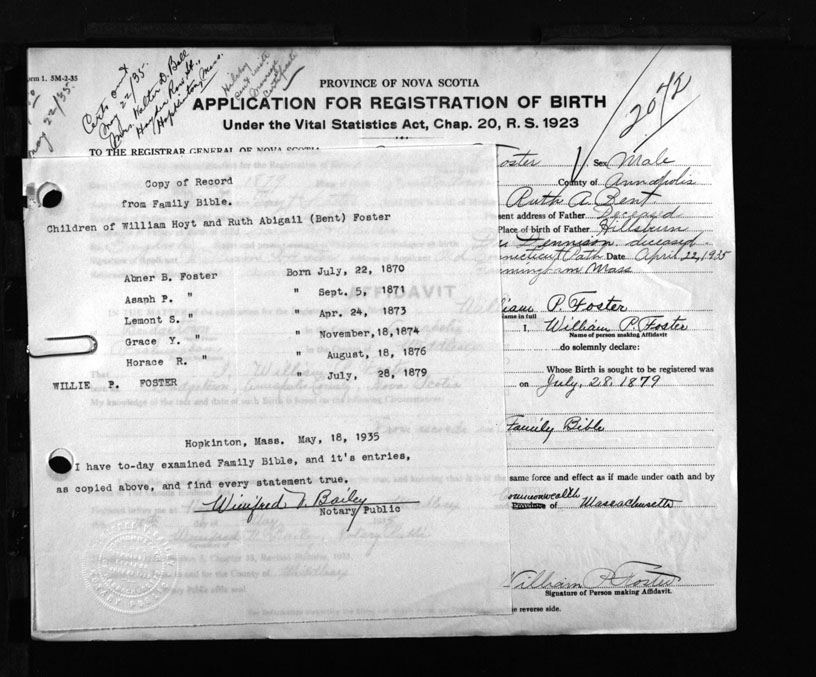 orm 1. 5M-2-35
May 22/35.
Certs out
May 22/35.
Mrs. Walter D. Ball
Hayden Row St.,
Hopkinton, Mass.
certificate
PROVINCE OF NOVA SCOTIA
APPLICATION FOR REGISTRATION OF BIRTH
Under the Vital Statistics Act, Chap. 20, R. S. 1923
2072
TO THE REGISTRAR GENERAL OF NOVA SCOTIA
Foster Sex Male
County of Annapolis
Ruth A Bent
sent address of Father Deceased
Place of birth of Father Hillsburn
Dr Dennison, deceased.
Connecticut Path Date April 22, 1935
Framingham Mass
William P. Foster
ame in full
I, William P. Foster
Name of person making Affidavit
do solemnly declare:
Whose Birth is sought to be registered was
on July, 28, 1879
Family Bible
same force and effect as if made under oath and by
Commonwealth
Province of Massachusetts
William P. Foster
Signature of Person making Affidavit.
e reverse side.
Copy of Record
from Family Bible.
Children of William Hoyt and Ruth Abigail (Bent) Foster
Abner B. Foster Born July, 22, 1870
Asaph P. " " Sept. 5, 1871
Lemont S. " " Apr. 24, 1873
Grace Y. " " November,18,1874
Horace R. " " August, 18, 1876
WILLIE P. FOSTER " July, 28, 1879
Hopkinton, Mass. May, 18, 1935
I have to-day examined Family Bible, and it's entries,
as copied above, and find every statement true.
Winifred N. Bailey
Notary Public